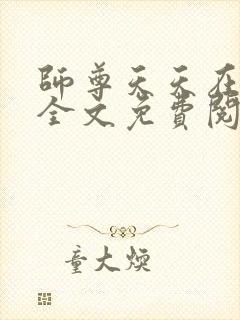 師尊天天在
全文免費閱
童大煥